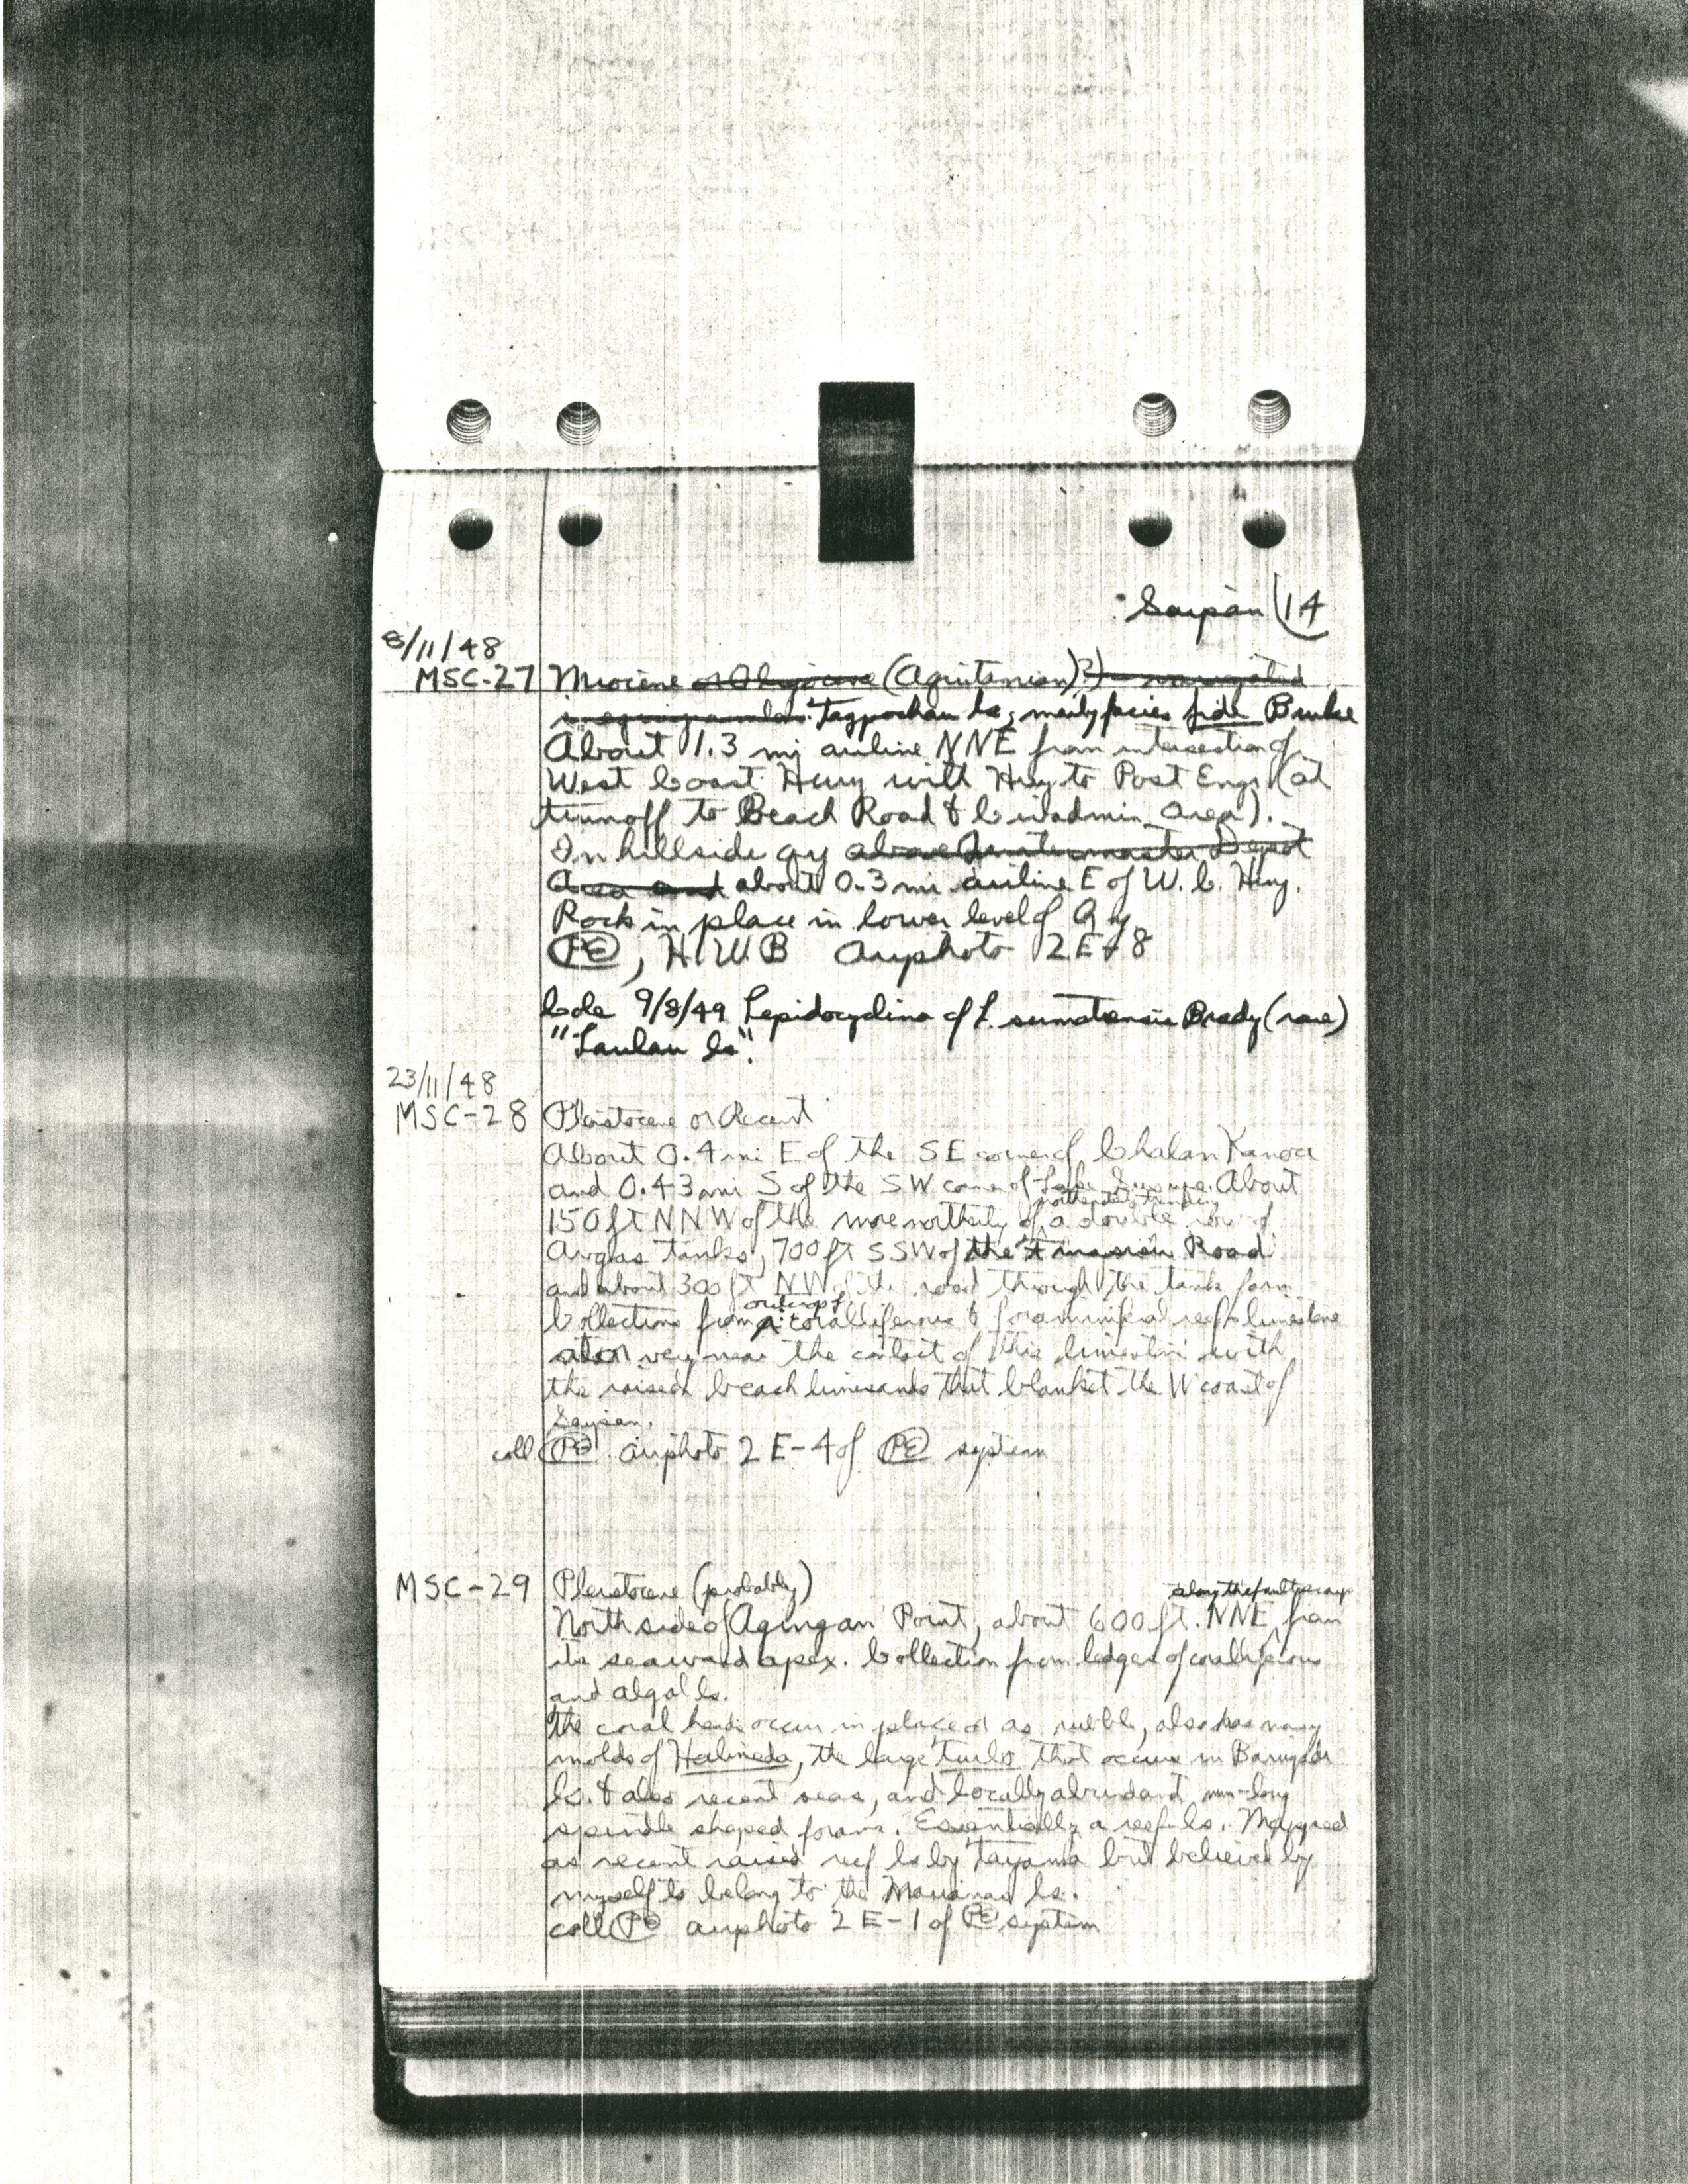 Saipan (14
8/11/48
MSC-27 Miocene or Oligocene (Aquitanian)?)
Tagpochau ls, marly facies fide Burke
About 1.3 mi airline NNE from intersection of
West Coast Hwy with Hwy to Post Engr (at
turnoff to Beach Road & Civadmin area).
In hillside qy above Quartermaster Depot
Area and about 0.3 mi airline E of W.C. Hwy.
Rock in place in lower level of Qy
PE, H.W.B Airphoto 2E-8
Cole 9/8/49 Lepidocyclina cf L. sumatrensis Brady (rare)
"Laulau ls".
23/11/48
MSC-28 Pleistocene or Recent
About 0.4 mi E of the SE corner of Chalan Kanoa
and 0.43 mi S of the SW corner of Lake Susupe. About
150 ft NNW of the more northerly of a double row of
Avgas tanks, 700 ft SSW of the Road
and about 300 ft NW of the road through the tank farm
Collections from outcrop of coralliferous & foraminiferal reef limestone
very near the contact of this limestone with
the raised beach limesands that blanket the W coast of
Saipan.
coll PE airphoto 2 E-4 of PE system
MSC-29 Pleistocene (probably)
along the fault scarp
North side of Agingan Point, about 600 ft. NNE from
its seaward apex. Collection from ledges of coralliferous
and algal ls.
The coral heads occur in place or as rubble, also has many
molds of Halimeda, the large turbo that occurs in Barrigada
ls. & also recent seas, and locally abundant mm-long
spindle shaped forams. Essentially a reef ls. Mapped
as recent raised reef ls by Tayama but believed by
myself to belong to the Marianas ls.
coll PE airphoto 2 E-1 of PE system